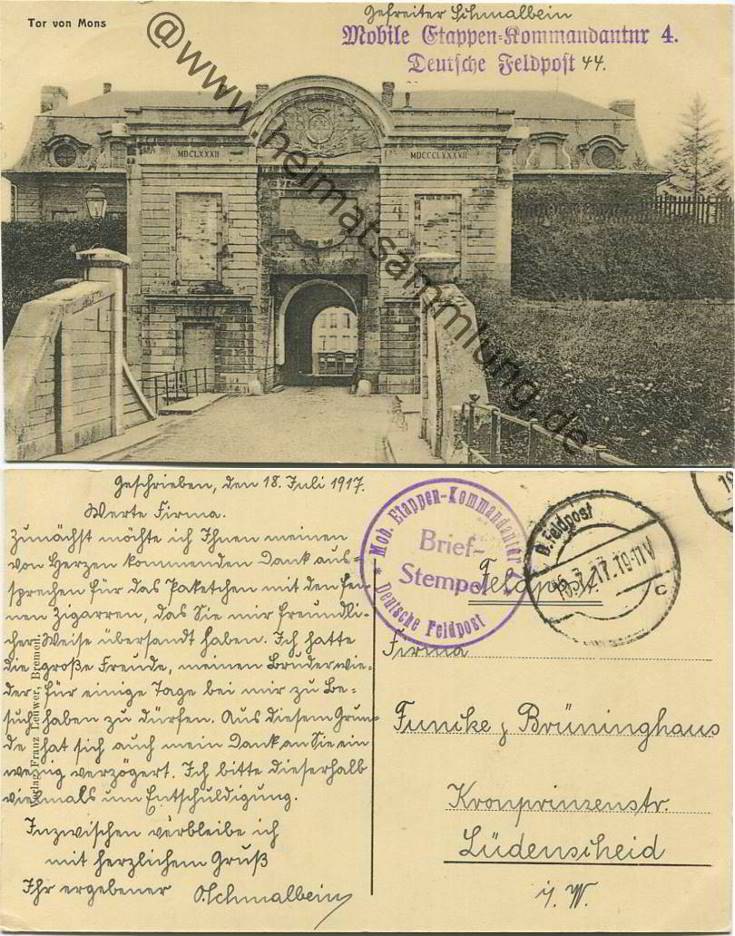 Gefreiter Schmalbein
Tor von Mons
Mobile Etappen-Kommandantur 4.
Deutsche Feldpost 44.
MDCLXXXII
MDCCCLXXXVII
@www.heimatsammlung.de
Geschrieben, den 18. Juli 1917.
Werte Firma.
Zunächst möchte ich Ihnen meinen
von Herzen kommenden Dank aus-
sprechen für das Paketchen mit den fei-
nen Zigarren, das Sie mir freundli-
cher Weise übersandt haben. Ich hatte
die große Freude, meinen Bruder wie-
der für einige Tage bei mir zu Be-
such haben zu dürfen. Aus diesem Grun-
de hat sich auch mein Dank an Sie ein
wenig verzögert. Ich bitte dieserhalb
vielmals um Entschuldigung.
Inzwischen verbleibe ich
mit herzlichem Gruß
Ihr ergebener O. Schmalbein
Verlag: Franz Leuwer, Bremen.
* Mob. Etappen-Kommandantur
Brief-
Stempel
Deutsche Feldpost
Feldpost
D. Feldpost
7.17.10-11V
c
Firma
Funcke & Brüninghaus
Kronprinzenstr.
Lüdenscheid
i/W.